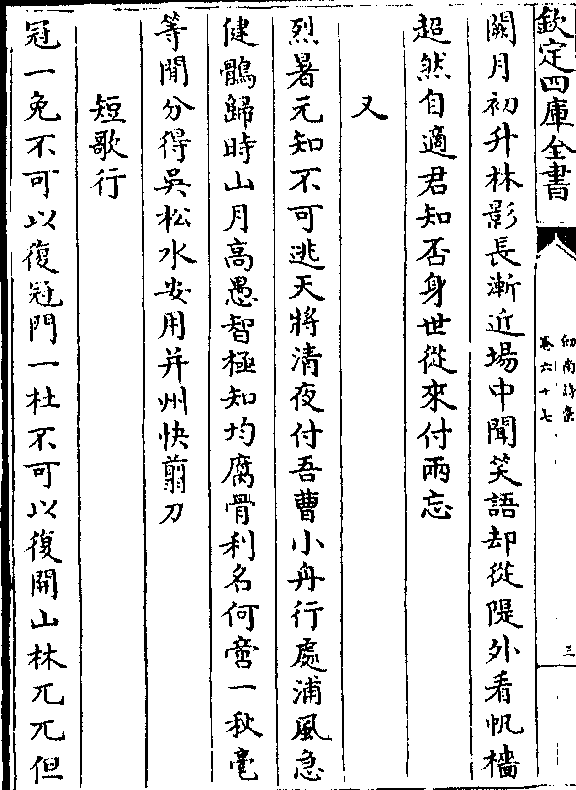 欽定四庫全書
劔南詩藁
卷六十七
三
闕月初升林影長漸近場中聞笑語却從隄外看帆檣
超然自適君知否身世從來付兩忘
又
烈暑元知不可逃天將清夜付吾曹小舟行處浦風急
健鶻歸時山月高愚智極知均腐骨利名何啻一秋毫
等閒分得吳松水安用并州快翦刀
短歌行
冠一免不可以復冠門一杜不可以復開山林兀兀但